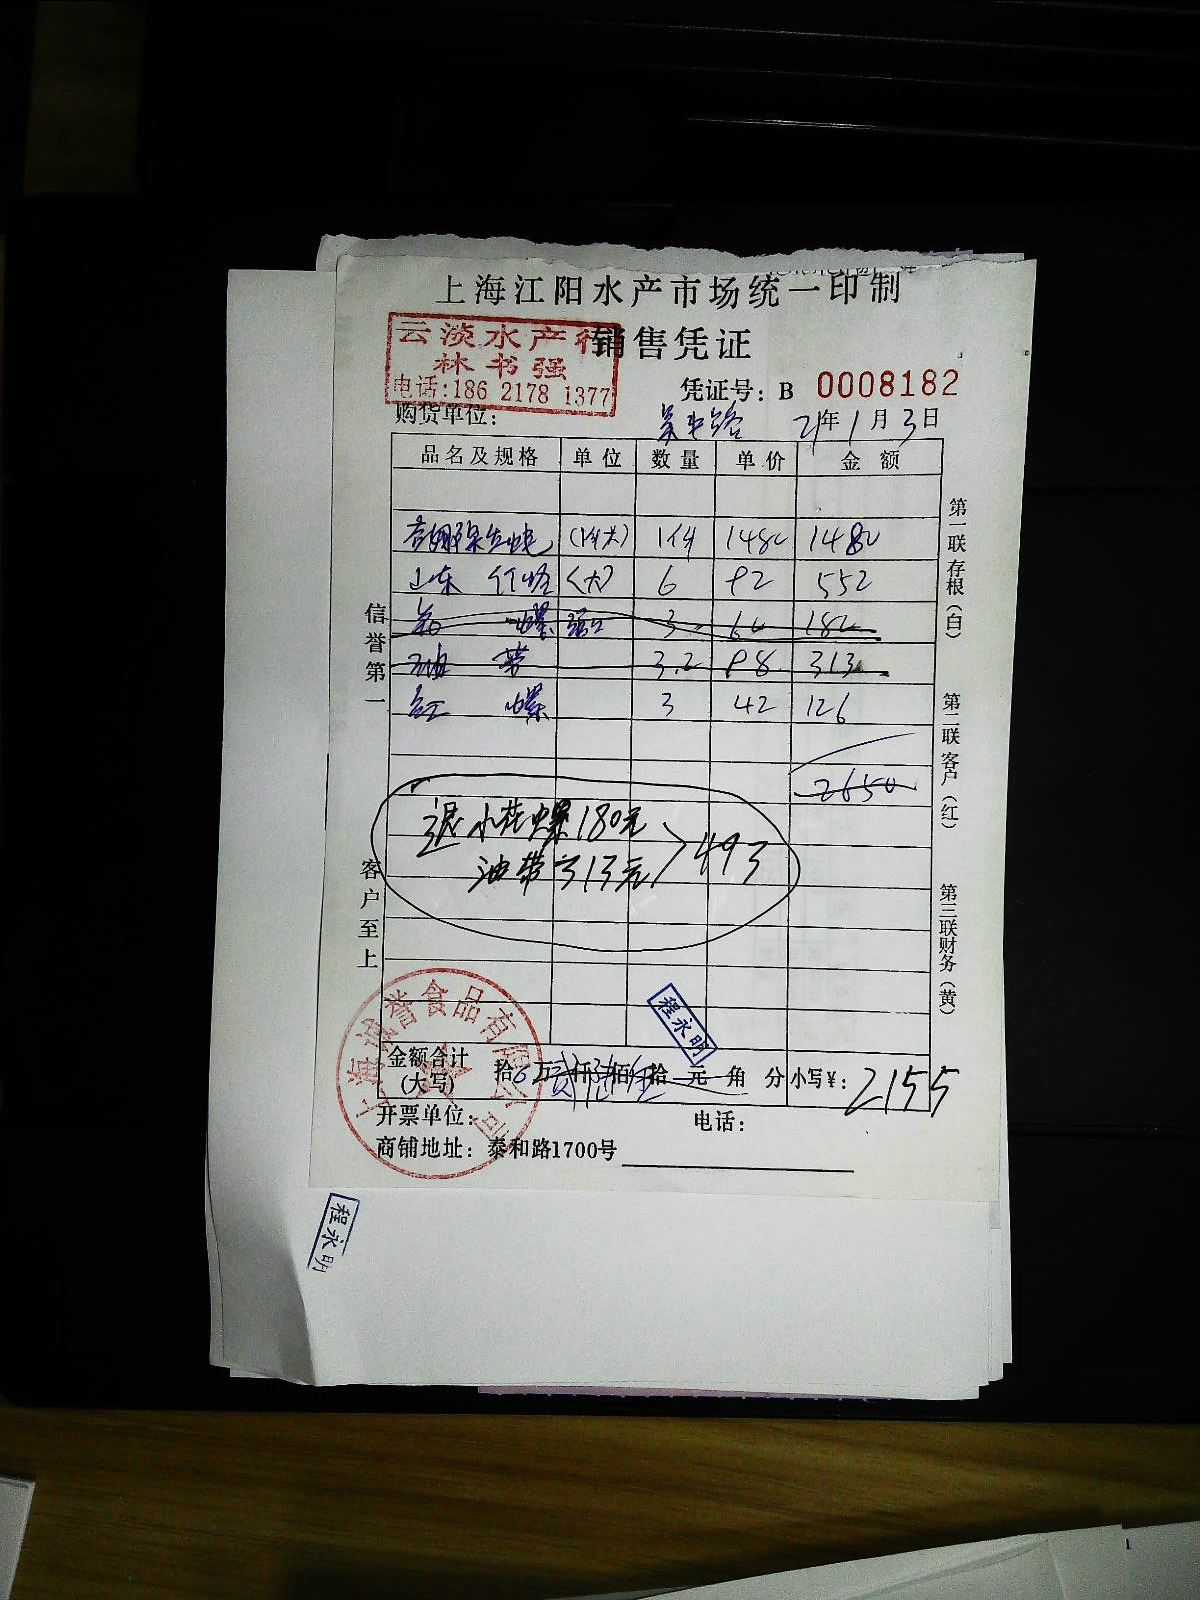 上海江阳水产市场统一印制
销售凭证
云淡水产行
林书强
电话:186 2178 1377
凭证号: B 0008182
购货单位: 吴中路 21年1月3日
品名及规格 单位 数量 单价 金额
1件 1480 1480
山东 (大) 6 92 552
螺 3 60 180
油带 3.2 98 313
红螺 3 42 126
2650
退 小花螺180元
油带313元 > 493
信誉第一
客户至上
第一联存根(白)
第二联客户(红)
第三联财务(黄)
程永明
上海诚誉食品有限公司
金额合计
(大写) 拾 万 仟 佰 拾 元 角 分 小写¥: 2155
开票单位: 电话:
商铺地址: 泰和路1700号
程永明